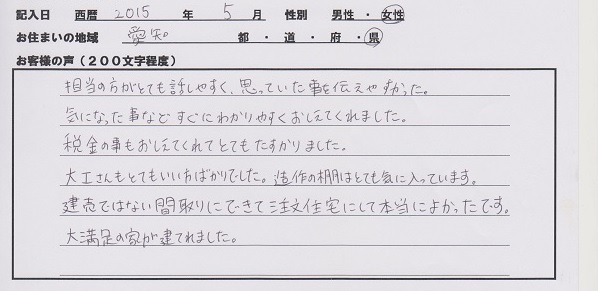 記入日 西暦 2015 年 5 月 性別 男性 ・ 女性
お住まいの地域 愛知 都 ・ 道 ・ 府 ・ 県
お客様の声(200文字程度)
担当の方がとても話しやすく、思っていた事を伝えやすかった。
気になった事などすぐにわかりやすくおしえてくれました。
税金の事もおしえてくれてとてもたすかりました。
大工さんもとてもいい方ばかりでした。造作の棚はとても気に入っています。
建売ではない間取りにできて注文住宅にして本当によかったです。
大満足の家が建てれました。